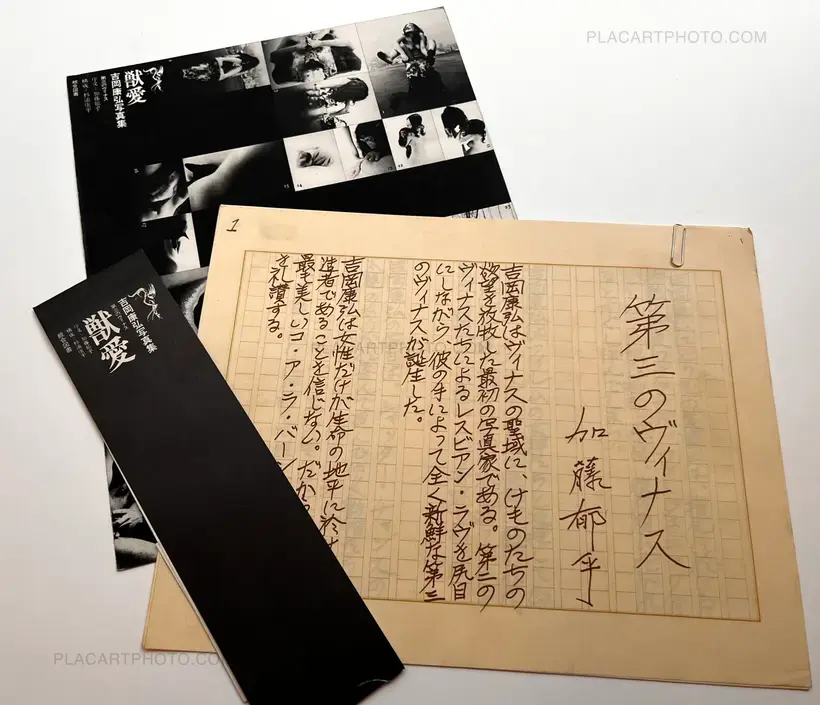 PLACARTPHOTO.COM
獣愛
吉岡康弘写真集
第三のヴィーナス
獣愛
吉岡康弘写真集
第三のヴィーナス
1
第三のヴィナス
加藤郁乎
吉岡康弘はヴィナスの聖域に、けものたちの
欲望を放牧した最初の写真家である。第二の
ヴィナスたちによるレスビアン・ラヴを尻目
にしながら、彼の手によって全く新鮮な第三
のヴィナスが誕生した。
吉岡康弘は女性だけが生命の地平に
造者であることを信じない。だか
最も美しいコ・ア・ラ・バーン
を礼讃する。
PLACARTPHOTO.COM
PLACARTPHOTO.CO